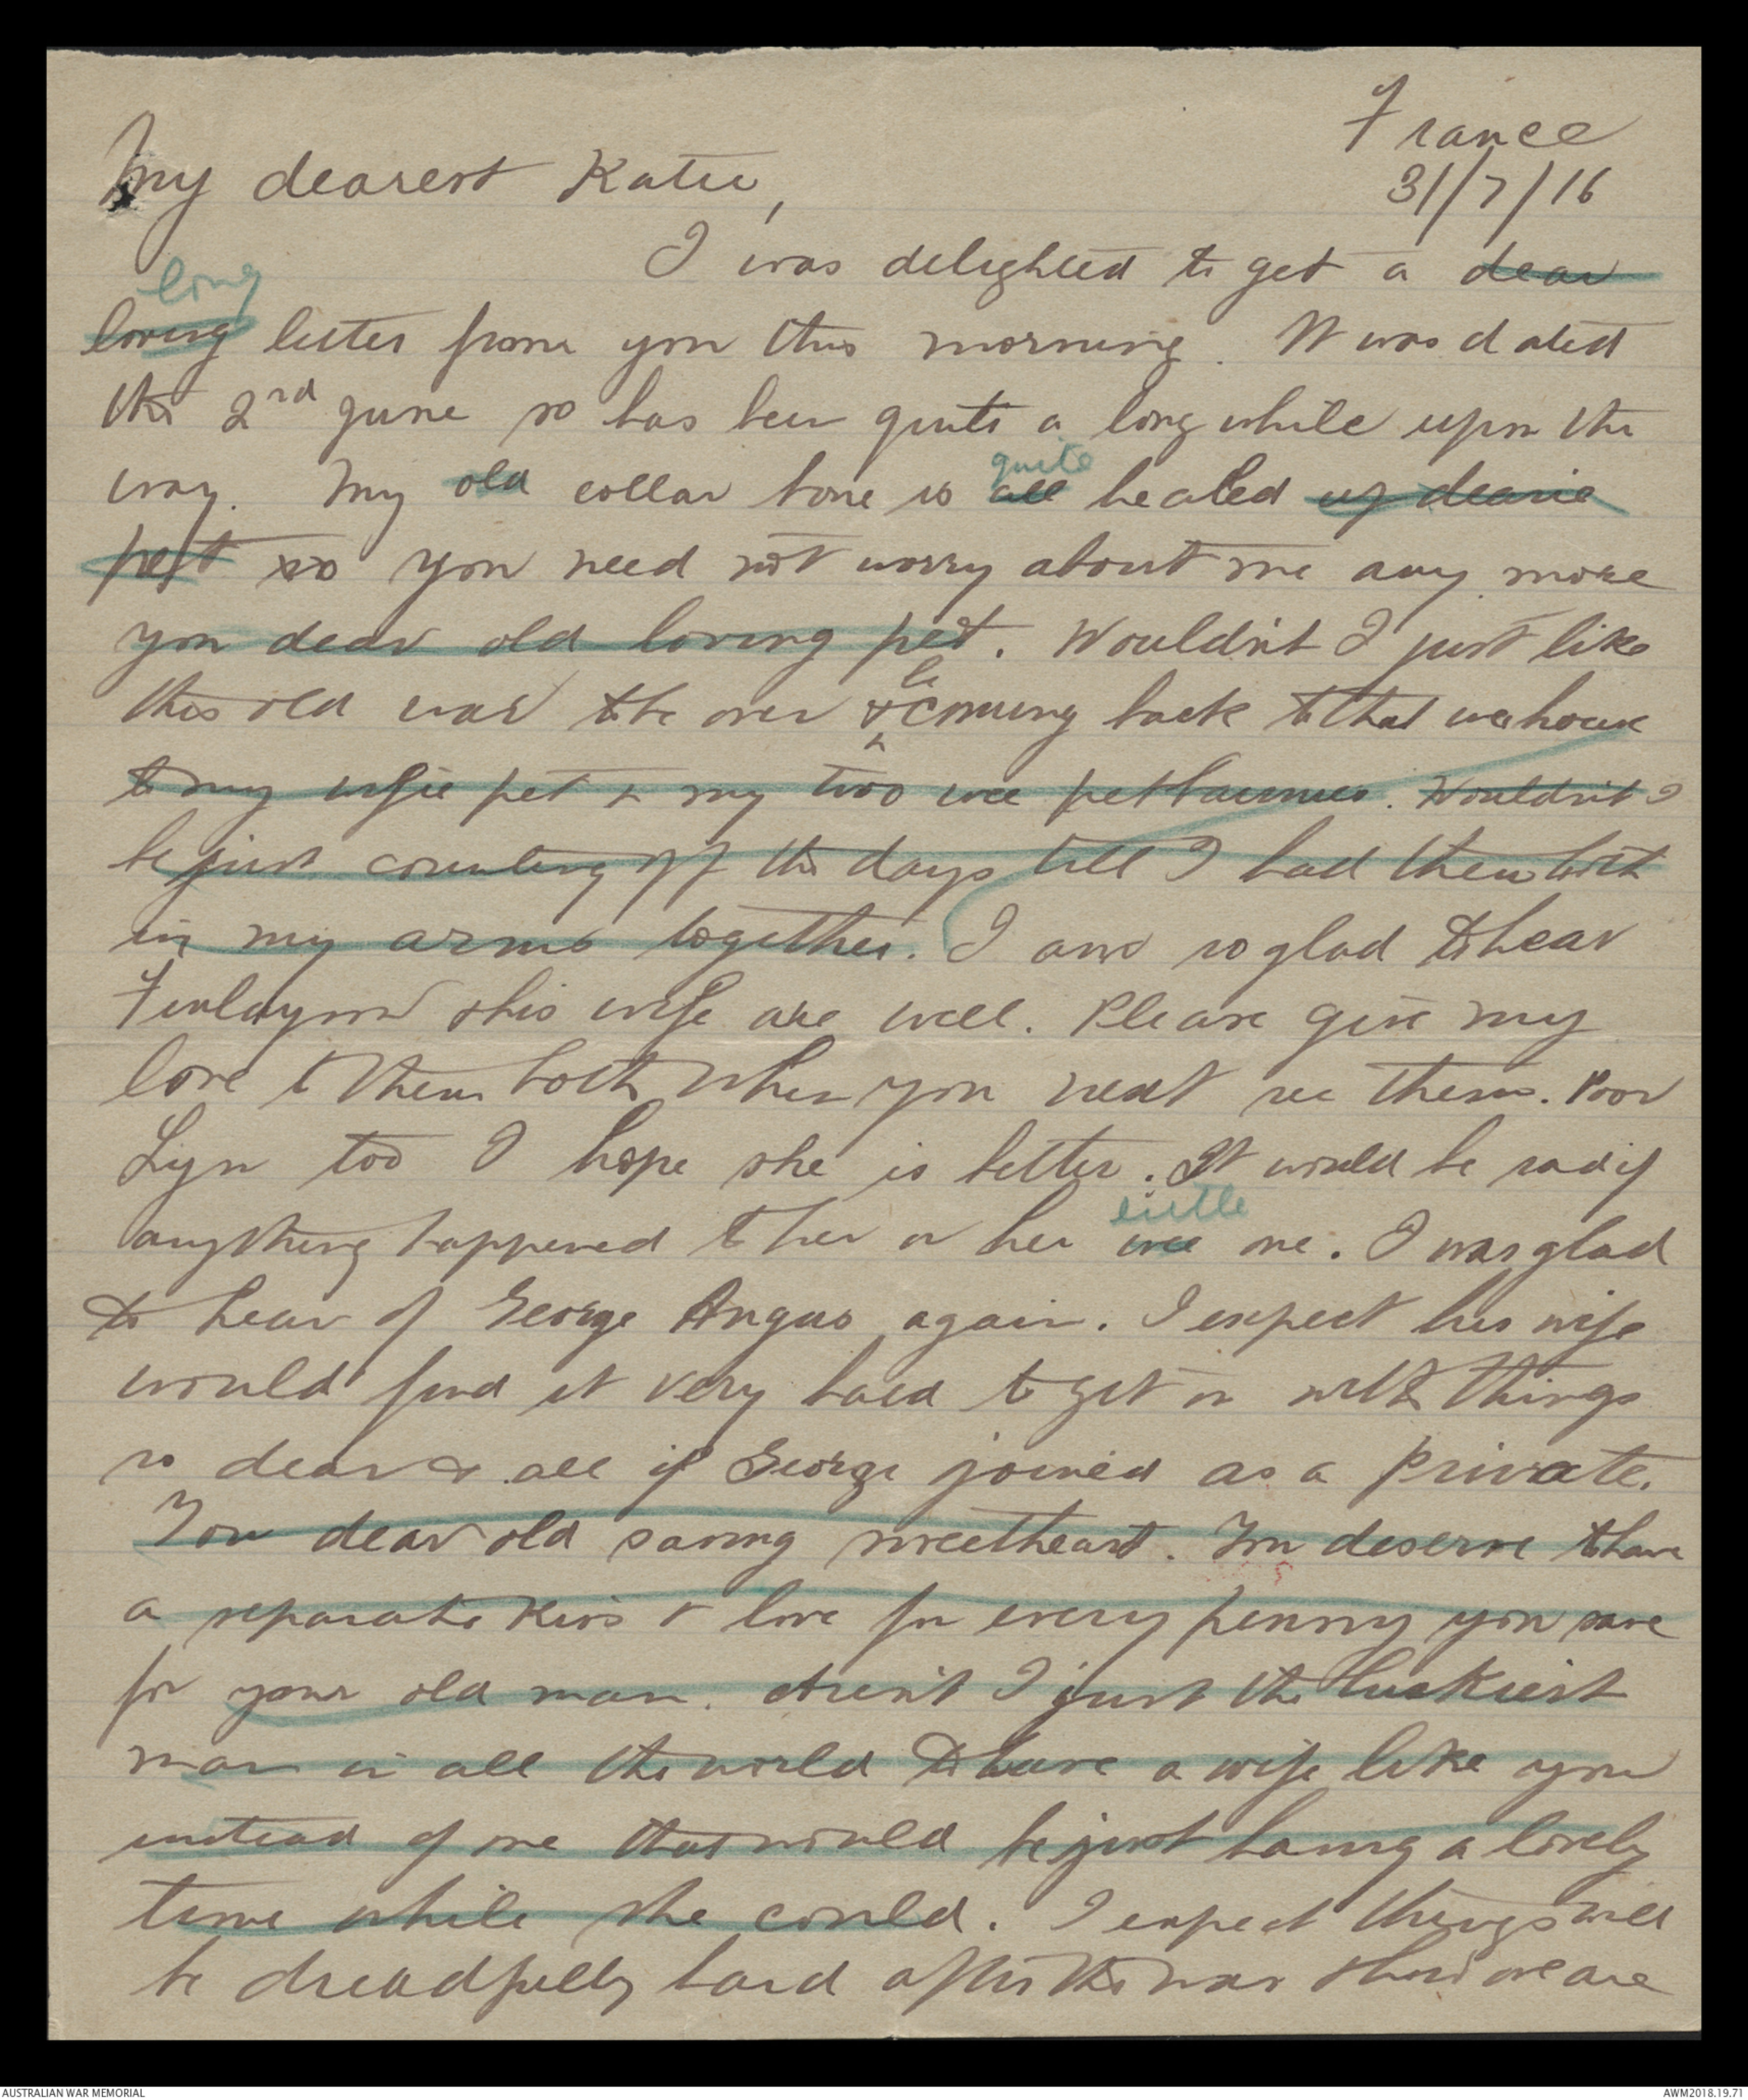 France
31/7/16
My dearest Katie,
I was delighted to get a dear
long
loving letter from you this morning. It was dated
the 2nd June so has been quite a long while upon the
quite
way. My old collar bone is all healed up dearie
pet so you need not worry about me any more
you dear old loving pet. Wouldn't I just like
be
this old war to be over & coming back to that wee house
to my wifie pet & my two wee pet lammies. Wouldn't I
be just counting off the days till I had them both
in my arms together. I am so glad to hear
Finlayson & his wife are well. Please give my
love to them both when you next see them. Poor
Lyn too I hope she is better. It would be sad if
little
anything happened to her or her wee one. I was glad
to hear of George Angus again. I expect his wife
would find it very hard to get on with things
so dear & all if George joined as a private.
You dear old saving sweetheart. You deserve to have
a separate kiss & love for every penny you save
for your old man. Aren't I just the luckiest
man in all the world to have a wife like you
instead of one that would be just having a lovely
time while she could. I expect things will
be dreadfully hard after the war & here we are
AUSTRALIAN WAR MEMORIAL
AWM2018.19.71